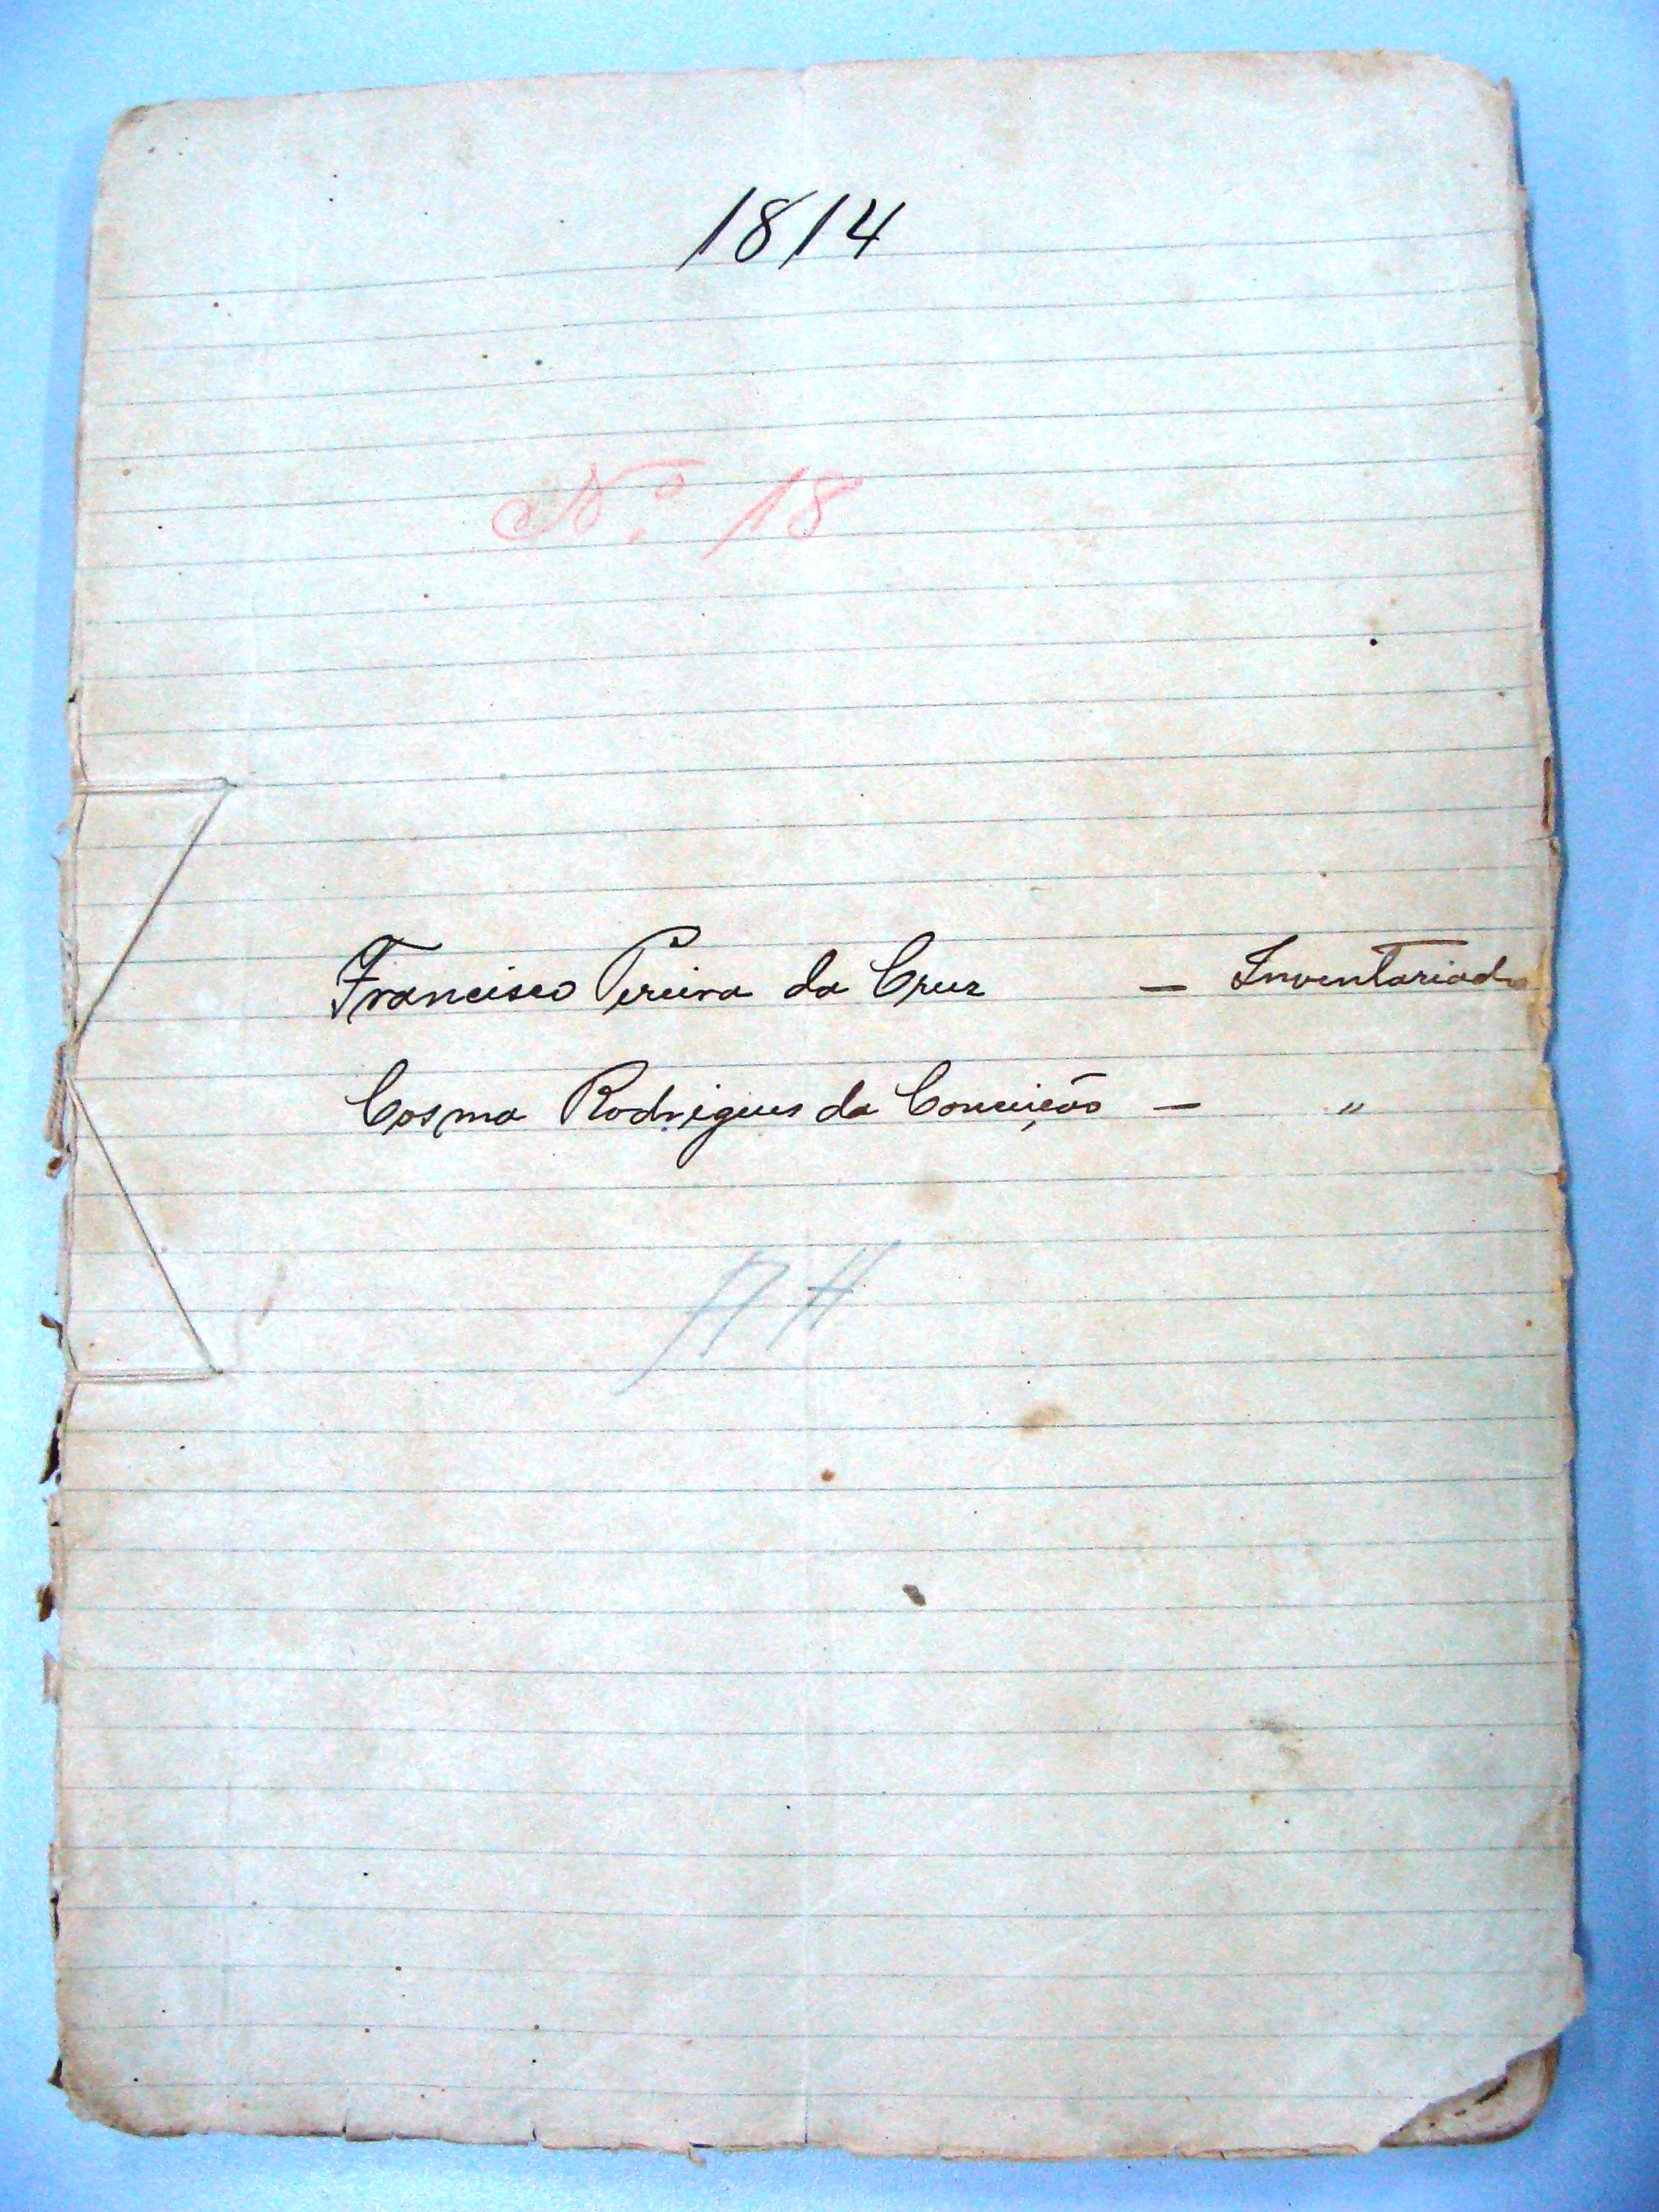 1814
Nº 18
Francisco Pereira da Cruz — Inventariado
Cosma Rodrigues da Conceição — "